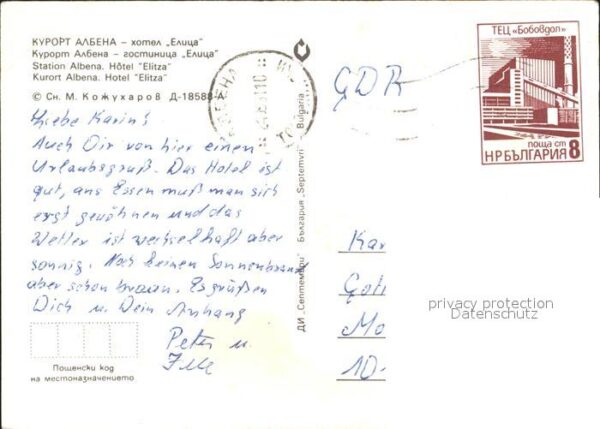 КУРОРТ АЛБЕНА – хотел „Елица"
Курорт Албена – гостиница „Елица"
Station Albena. Hôtel "Elitza"
Kurort Albena. Hotel "Elitza"
© Сн. М. Кожухаров Д-18588-А
Liebe Karin's
Auch Dir von hier einen
Urlaubsgruß. Das Hotel ist
gut, ans Essen muß man sich
erst gewöhnen und das
Wetter ist wechselhaft aber
sonnig. Noch keinen Sonnenbrand
aber schon braun. Es grüßen
Dich u. Dein Anhang
Peter u.
Пощенски код
на местоназначението
ДИ „Септември" – България „Septemvri" – Bulgaria
GDR
ТЕЦ «Бобовдол»
поща ст
НРБЪЛГАРИЯ 8
Kar
Goti
Mo
10-
privacy protection
Datenschutz